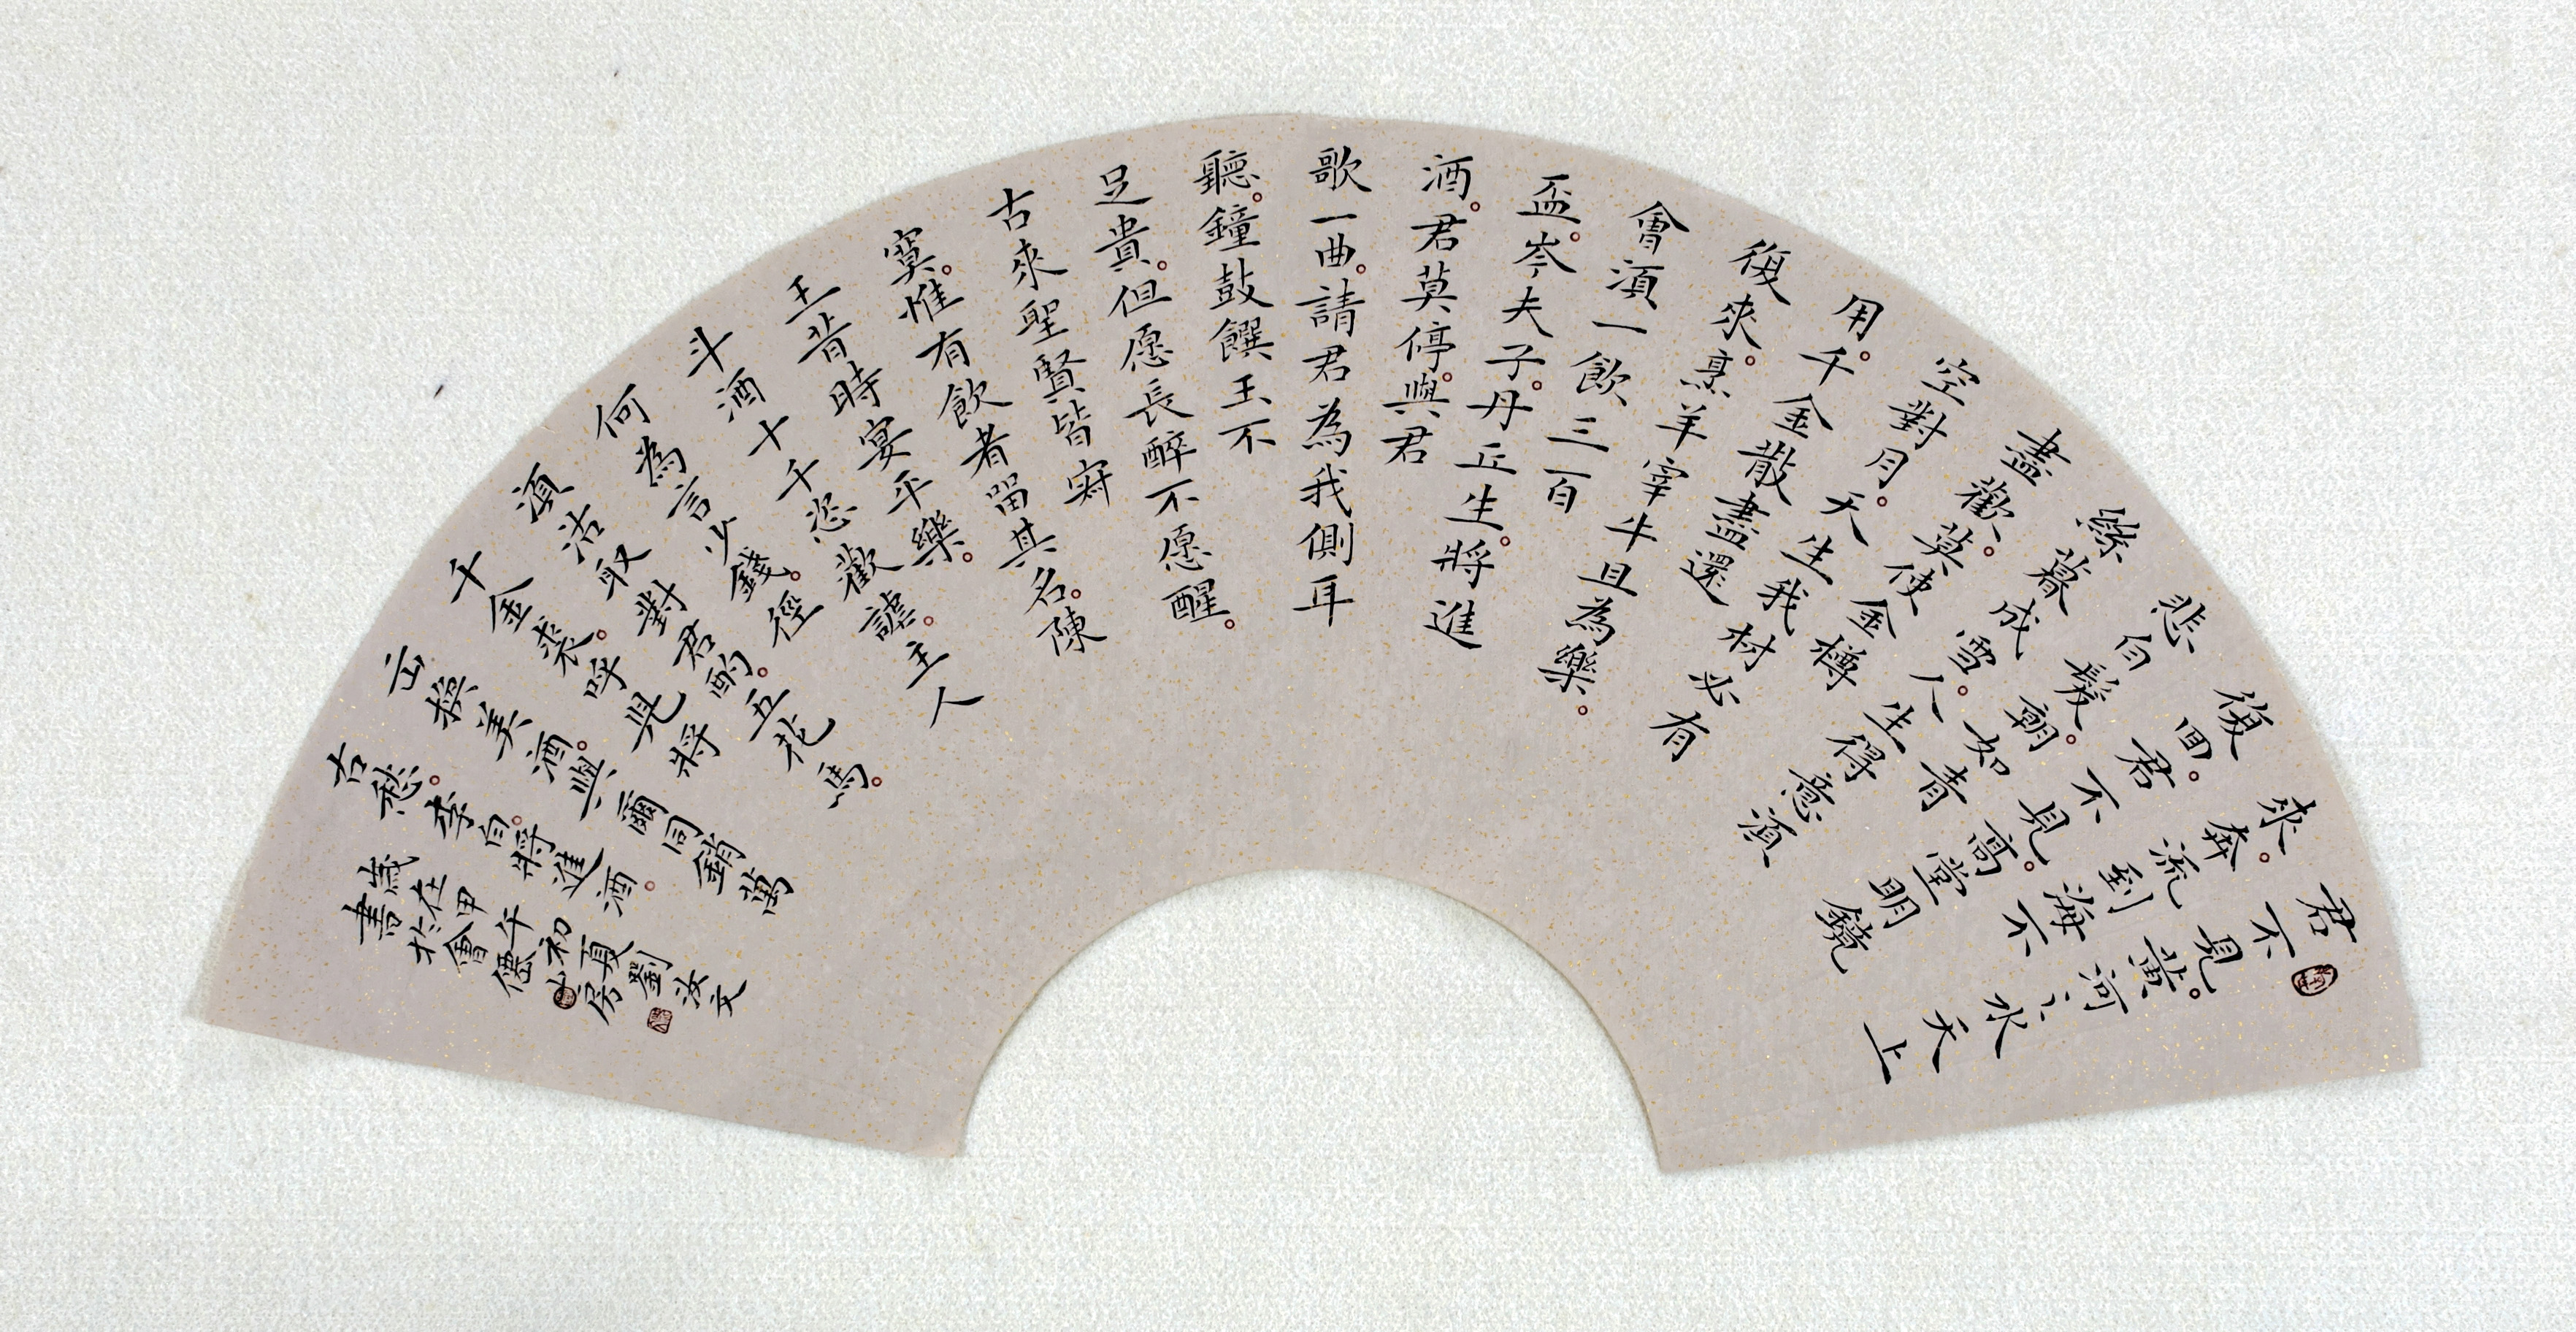 君不見黃。河之水天上
來。奔流到海不
復回。君不見高。堂明鏡
悲白髮。朝如青
絲暮成雪。人生得意須
盡歡。莫使金樽
空對月。天生我材必有
用。千金散盡還
復來。烹羊宰牛且為樂。
會須一飲三百
盃。岑夫子。丹丘生。將進
酒。君莫停。與君
歌一曲。請君為我側耳
聽。鐘鼓饌玉不
足貴。但愿長醉不愿醒。
古來聖賢皆寂
寞。惟有飲者留其名。陳
王昔時宴平樂。
斗酒十千恣歡謔。主人
何為言少錢。徑
須沽取對君酌。五花馬。
千金裘。呼兒將
出換美酒。與爾同銷萬
古愁。李白。將進酒。
歲在甲午初夏劉汝文
書於會僊山房